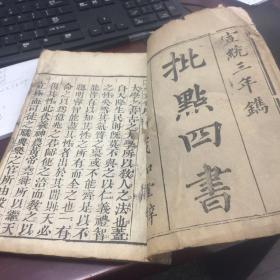 宣統三年鐫
批點四書
大學之書古之大學所以教人之法也蓋
自天降生民則旣莫不與之以仁義禮智
之性矣然其氣質之稟或不能齊是以不
能皆有以知其性之所有而全之也一有
聰明睿智能盡其性者出於其間則天必
命之以爲億兆之君師使之治而教之以
復其性此伏羲神農黃帝堯舜所以繼天
立極而司徒之職典樂之官所由設